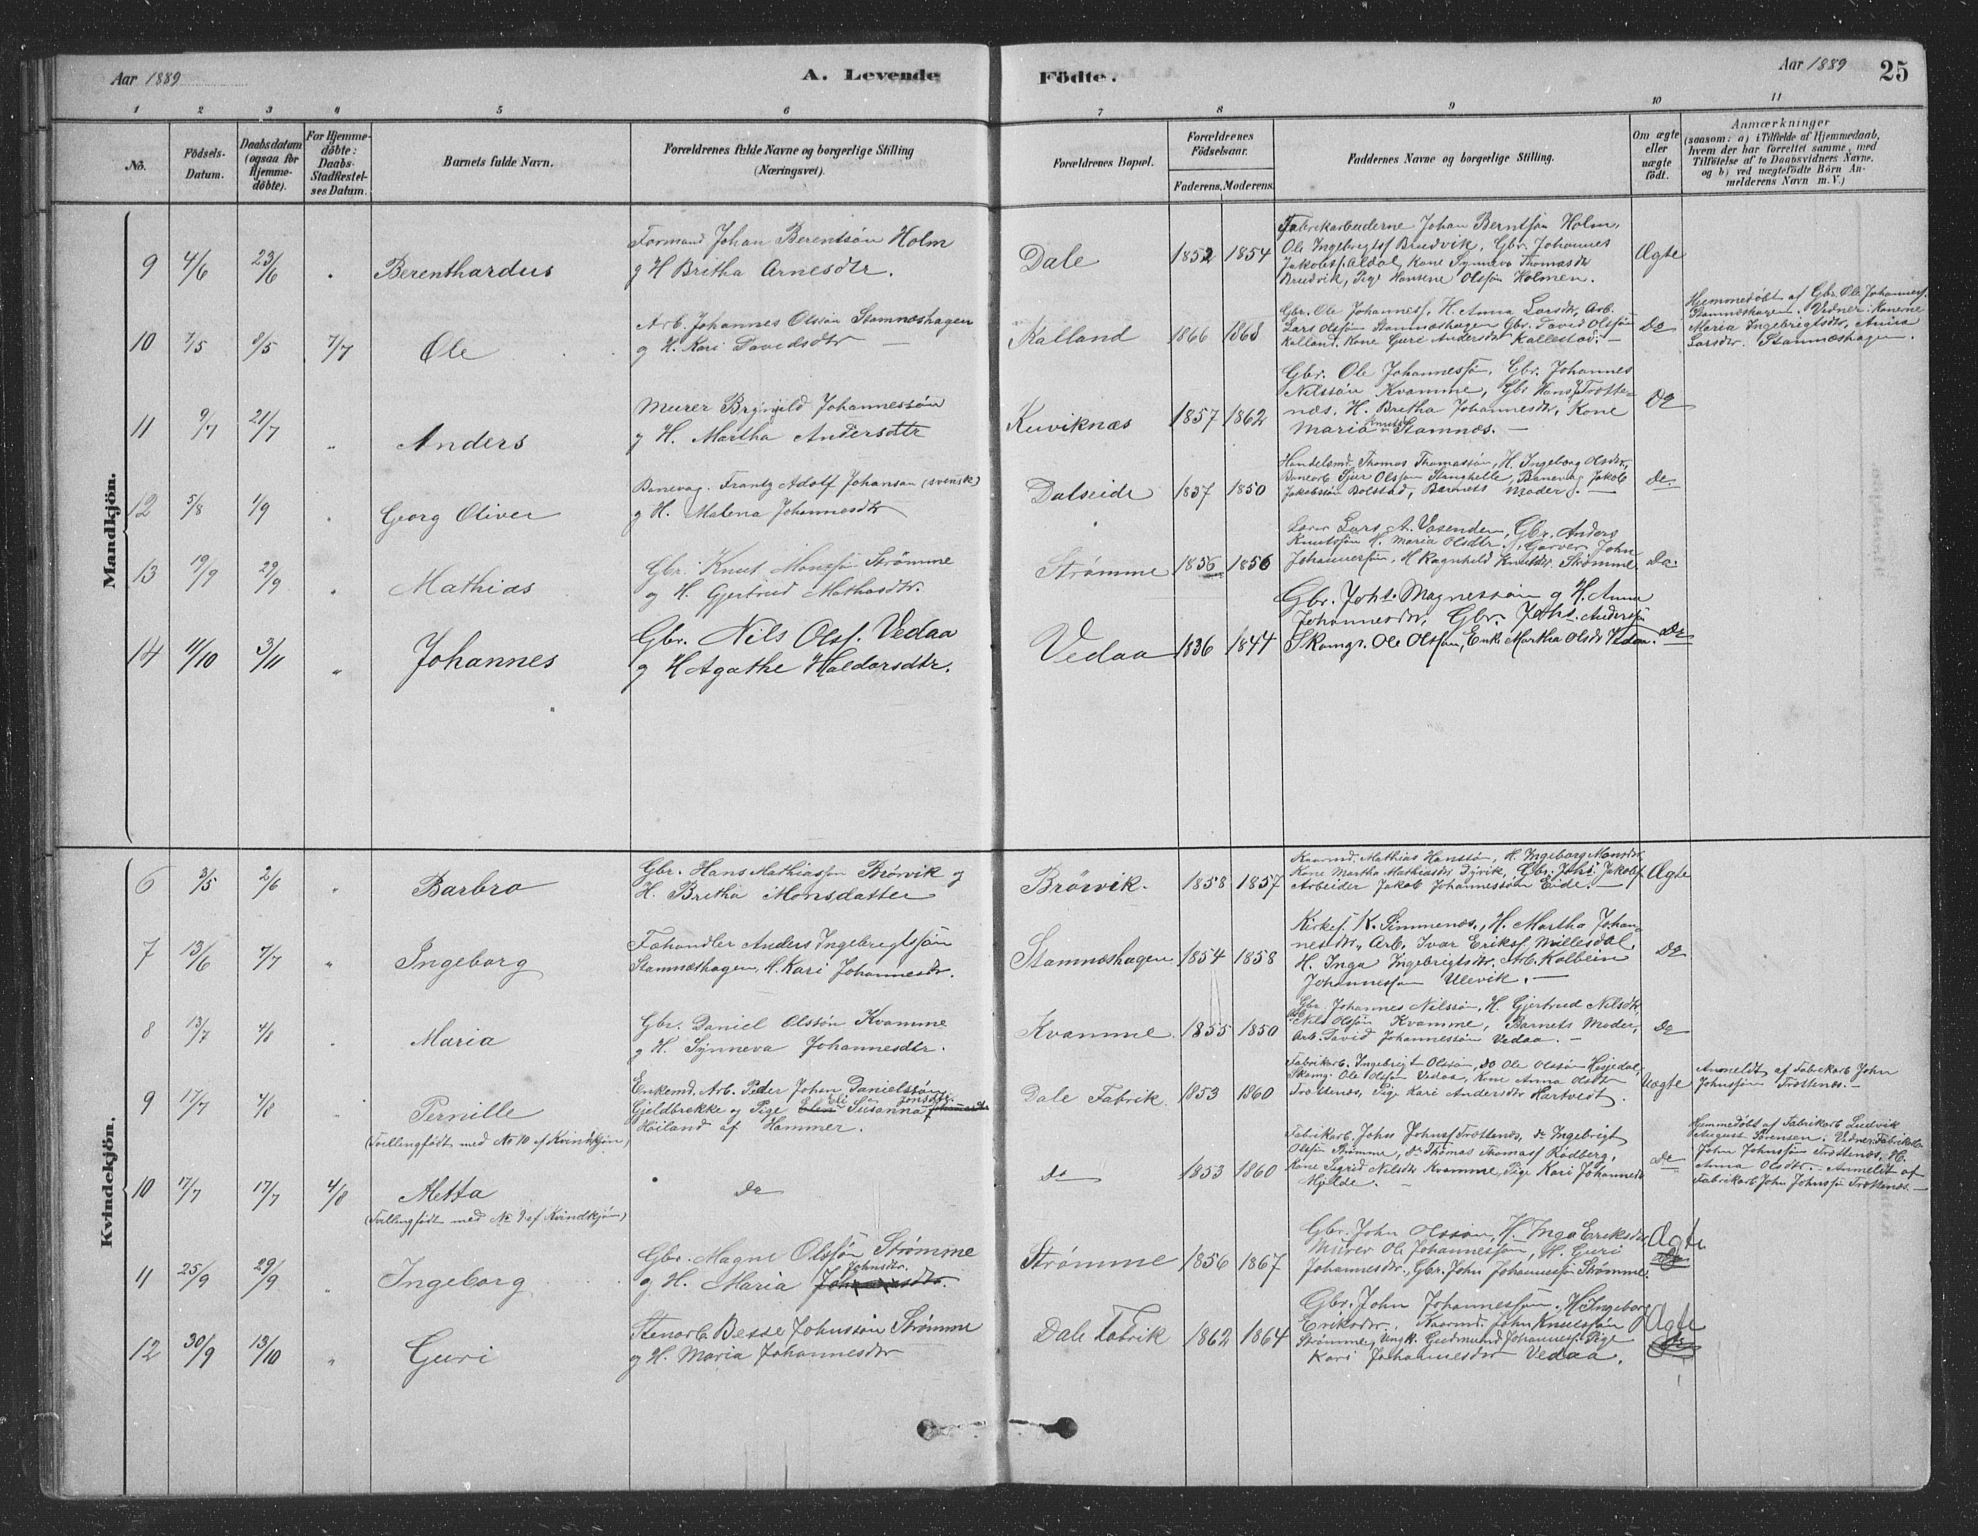 Aar 1889
A. Levende
Födte.
Aar 1889
25
1 2 3 4 5 6 7 8 9 10 11
No.
Födsels-
Datum.
Daabsdatum
(ogsaa for
Hjemme-
döbte).
For Hjemme-
döbte:
Daabs-
Stadfæstel-
ses Datum.
Barnets fulde Navn.
Forældrenes fulde Navne og borgerlige Stilling
(Næringsvei).
Forældrenes Bopæl.
Forældrenes
Födselsaar.
Faderens. Moderens.
Faddernes Navne og borgerlige Stilling.
Om ægte
eller
uægte
födt.
Anmærkninger
(saasom: a) i Tilfælde af Hjemmedaab,
hvem der har forrettet samme, med
Tilföielse af to Daabsvidners Navne,
og b) ved uægtefödte Börn An-
melderens Navn m. V.)
Mandkjön.
9 4/6 23/6 " Berenthardus
Formand Johan Berentsön Holm
og H Britha Arnesdtr.
Dale 1852 1854
Fabrikarbeiderne Johan Berntsön Holm,
Ole Ingebrigts. Bruvik, Gbr. Johannes
Jakobs. Aldal, Kone Synneva Thomasdtr
Bruvik, Pige Hansine Olsön Holmen.
Ægte
10 7/5 8/5 7/7 Ole
Arb. Johannes Olsön Stamneshagen
og H. Kari Davidsdtr
Kalland 1866 1868
Gbr. Ole Johanness. H. Anna Larsdtr, Arb.
Lars Olsön Stamneshagen Gbr. David Olsön
Kalland. Kone Guri Andersdtr Kallestad.
Do
Hjemmedöbt af Gbr. Ole Johanness.
Stamneshagen. Vidner: Konerne
Maria Ingebrigtsdtr, Anna
Larsdtr. Stamneshagen.
11 9/7 21/7 " Anders
Murer Brynjild Johannessön
og H. Martha Andersdtr
1857 1862
Gbr. Ole Johannessön, Gbr. Johannes
Nilssön Kvamme, Gbr. Hans J. Trotte-
næs, H. Britha Johannesdtr, Kone
Maria Knutsdtr Stamnæs.
Do
12 5/8 1/9 " Georg Oliver
Banevog. Frantz Adolf Johanson (svensk)
og H. Malena Johannesdtr
Dalseide 1857 1850
Handelsmd. Thomas Thomassön, H. Ingeborg Olsdtr,
Banearb Sjur Olsson Stanghelle, Banevog Jakob
Jakobssön Bolstad, Barnets Moder.
Do
13 19/9 29/9 " Mathias
Gbr. Knut Monssön Strømme
og H. Gjertrud Mathiasdtr.
Strømme 1856 1856
Lærer Lars A. Vasenden, Gbr. Anders
Knutssön H. Maria Olsdtr, Garver John
Johannessön, H Ragnhild Knutsdtr Strømme
Do.
14 11/10 3/11 " Johannes
Gbr. Nils Olss. Vedaa
og H Agathe Haldorsdtr.
Vedaa 1836 1844
Gbr. Johs. Magnessön og H. Anna
Johannesdtr, Gbr. Johs. Anderssön
Skomgr. Ole Olssön, Enke Martha Olsdtr Vedaa.
Do
Kvindekjön.
6 3/5 2/6 " Barbro
Gbr. Hans Mathiassön Brörvik og
H. Britha Monsdatter
Brörvik. 1858 1857
Kaarmd. Mathias Hanssön, H. Ingeborg Monsdtr,
Kone Martha Mathiasdtr Dyvik, Gbr. Johs Jakobs.
Arbeider Jakob Johannessön Eide.
Ægte
7 13/6 7/7 " Ingeborg
Fæhandler Anders Ingebregtssön
Stamneshagen, H. Kari Johannesdtr.
Stamneshagen 1854 1858
Kirkes. K. Simmenæs, H. Martha Johan-
nesdtr, Arb. Ivar Eriks. Millesdal,
H. Inga Ingebrigtsdtr. Arb. Kolbein
Johannessön Ulevik.
Do
8 13/7 4/8 " Maria
Gbr. Daniel Olssön Kvamme
og H. Synneva Johannesdtr.
Kvamme 1855 1850
Gbr. Johannes Nilssön, H. Gjertrud Nilsdtr,
Nils Olsön Kvamme, Barnets Moder,
Arb. David Johannessön Vedaa.
Do
9 17/7 4/8 " Pernille
(Tvillingfödt med No 10 af Kvindkjön)
Enkemd. Arb. Peder Johan Danielssön
Gjeldbrekke og Pige Susanna Jonsdtr.
Höiland af Hammer.
Dale Fabrik 1853 1860
Fabrikarb. Ingebrigt Olssön, do Ole Olssön Hesjedal,
Skomg. Ole Olssön Vedaa, Kone Anna Olsdtr
Trottenæs, Pige Kari Andersdtr Hartvedt.
Uægte
Anmeldt af Fabrikarb John
Johnssön Trottenæs.
10 17/7 17/7 4/8 Metta
(Tvillingfödt med No 9 af Kvindkjön)
do
do 1853 1860
Fabrikarb. Johs Johns. Trottenæs, do Ingebrigt
Olssön Strömme, do Thomas Thomass Rödberg,
Kone Sigrid Nilsdtr Kvamme, Pige Kari Johannesdtr
Mjelde.
Do
Hjemmedöbt af Fabrikarb. Ludvik
August Sörensen. Vidner: Fabrikarb.
John Johnssön Trottenæs, H.
Anna Olsdtr. Anmeldt af
Fabrikarb John Johnssön Trottenæs.
11 25/9 29/9 " Ingeborg
Gbr. Magne Olssön Strømme
og H. Maria Johnsdtr.
Strømme 1856 1867
Gbr. John Olssön, H. Inga Eriksdtr
Murer Ole Johannessön, H. Guri
Johannesdtr, Gbr. John Johannessön Strömme.
Ægte
12 30/9 13/10 " Guri
Stenarb. Besse Johnssön Strømme
og H. Maria Johannesdtr
Dale Fabrik 1862 1864
Gbr. John Johannessön, H Ingeborg
Eriksdtr. Kaarmd. John Knutssön
Strømme, Ungk. Gudmund Johanness. Pige
Kari Johannesdtr Vedaa.
Ægte